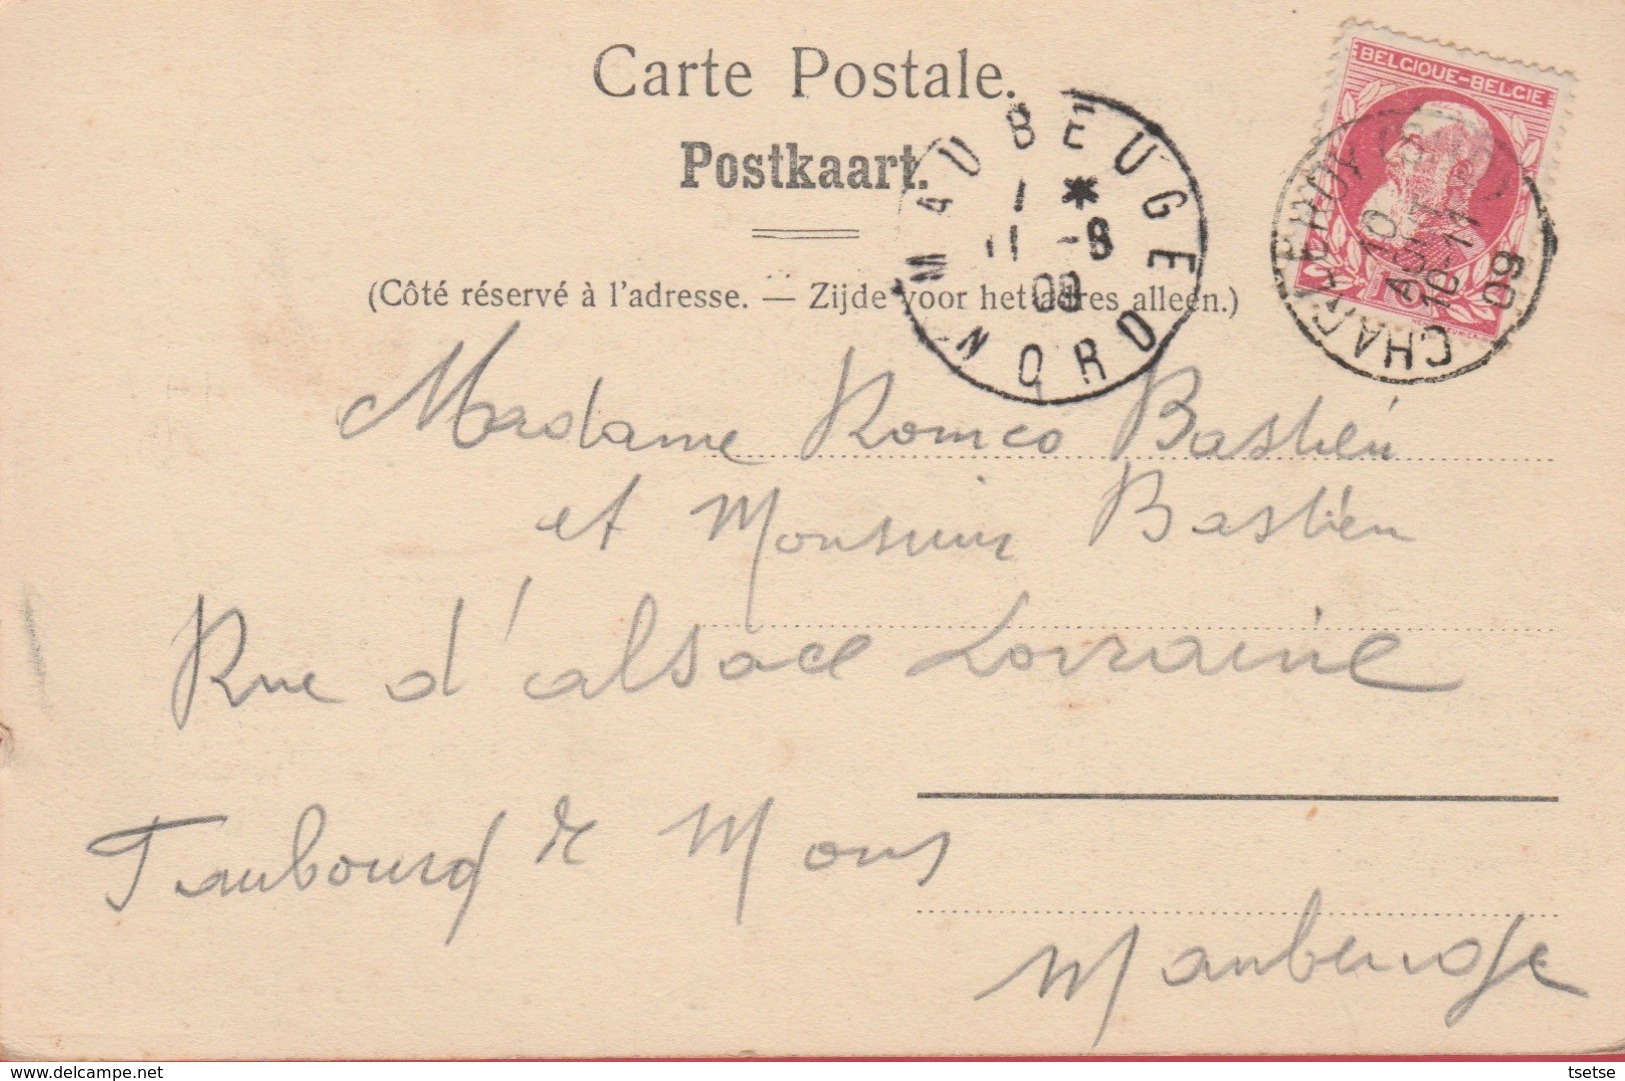 Carte Postale.
Postkaart.
(Côté réservé à l'adresse. — Zijde voor het adres alleen.)
BELGIQUE-BELGIE
MAUBEUGE
1 *
11 -8
09
NORD
CHARLEROY
10
AOUT
10-11
09
Madame Romeo Bastien
et Monsieur Bastien
Rue d'alsace Lorraine
Faubourg de Mons
Maubeuge
delcampe.net
tsetse